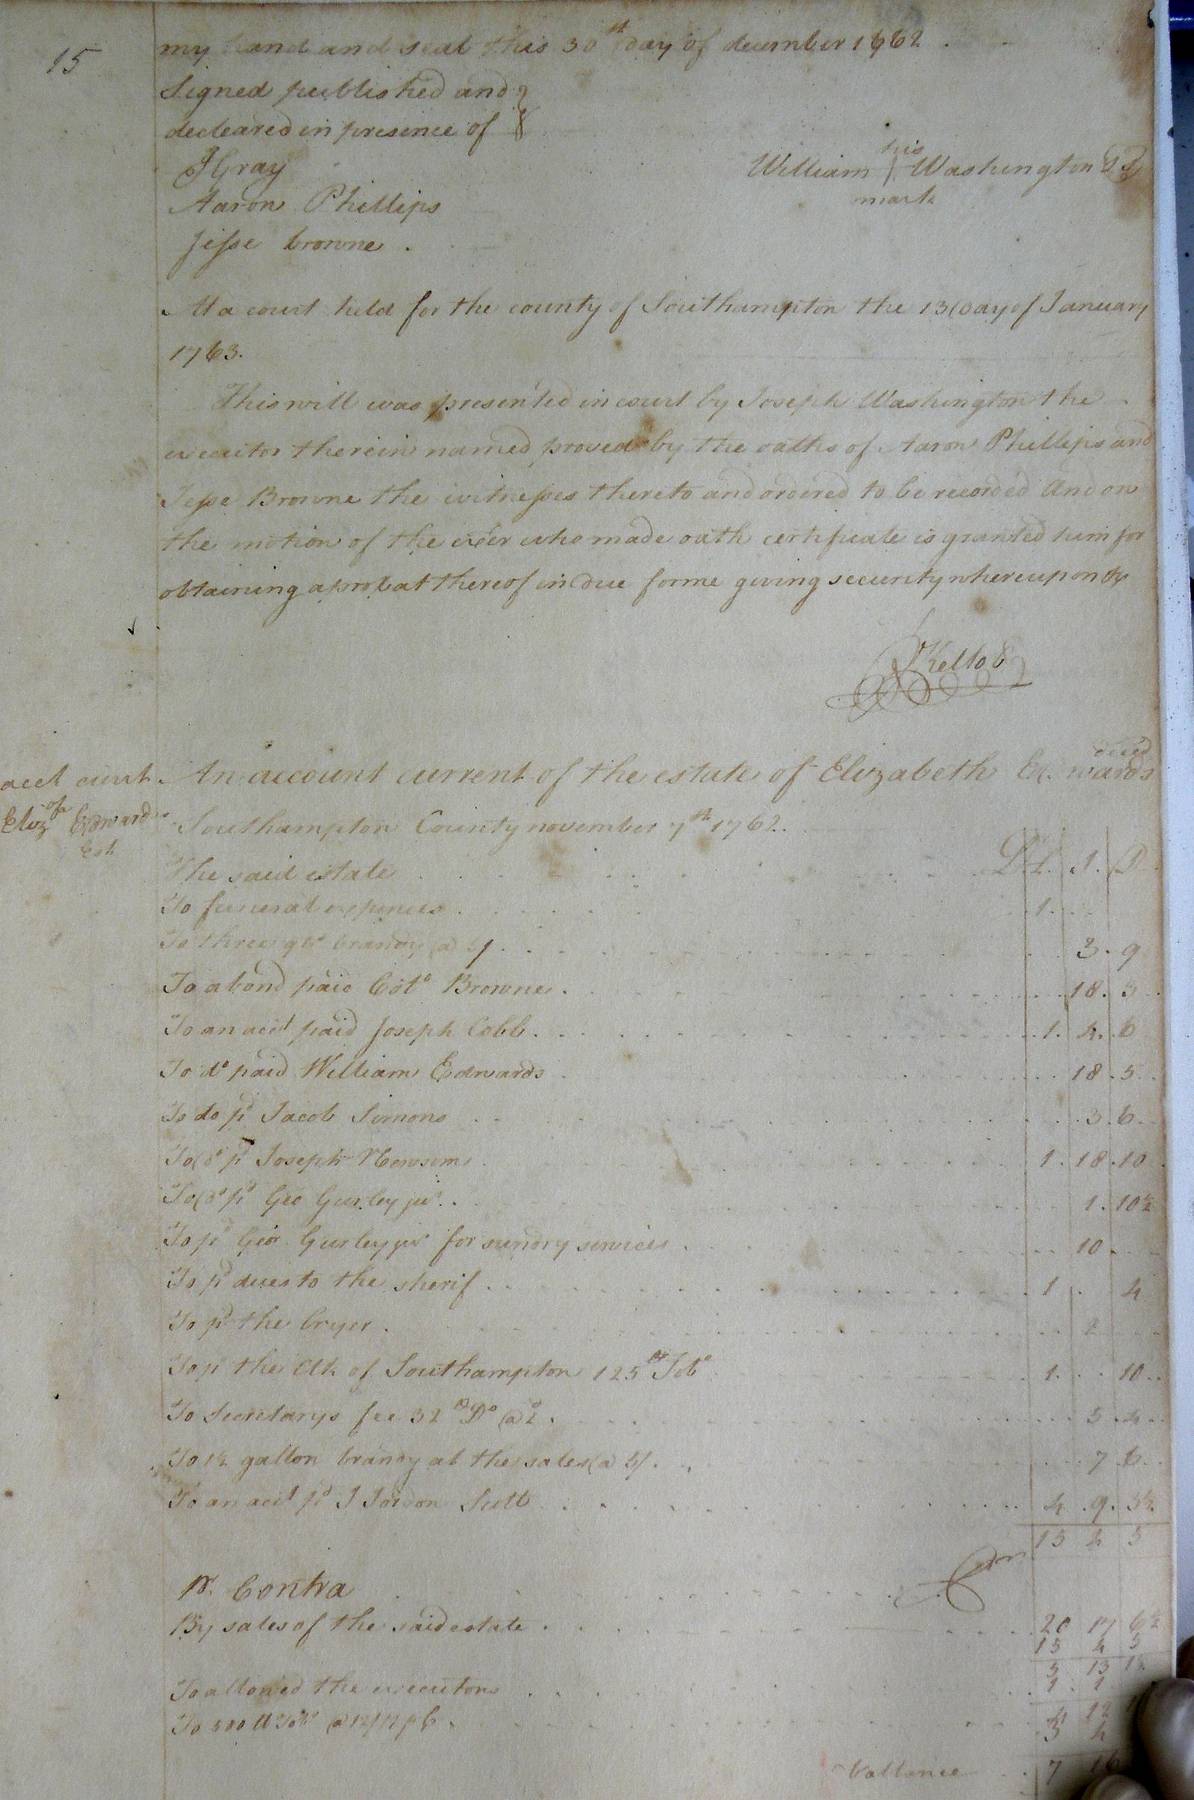 15
my hand and seal this 30th day of december 1762.
Signed published and
decleared in presence of
JGray
his
William Washington
mark
Aaron Phillips
Jesse browne.
At a court held for the county of Southampton the 13 day of January
1763.
This will was presented in court by Joseph Washington the
executor therein named proved by the oaths of Aaron Phillips and
Jesse Browne the witnesses thereto and ordered to be recorded And on
the motion of the exer who made oath certificate is granted him for
obtaining a probat thereof in due forme giving security whereupon &c
Kello
acct currt
of
Eliz Edwards
Est
An account current of the estate of Elizabeth Edwards decd
Southampton County november 7th 1762.
The said estate Dr L. S. D
To funeral expences 1
To three qts brandy @ 3. 9
To a bond paid Colo Browne. 18. 5
To an acct paid Joseph Cobb. 1. 4. 6
To do paid William Edwards 18. 5
To do pd Jacob Simons 3. 6
To do pd Joseph Newsom 1. 18. 10
To do pd Geo Gurley jur. 1. 10½
To pd Geor Gurley jur for sundry services 10
To pd dues to the sherif. 1. 4
To pd the Cryer. 2
To pd the Clk of Southampton 125 Tobo 1. 10
To Secretarys fee 32 Do @ 2. 5. 4
To 1½ gallon brandy at the sales @ 5/. 7 6
To an acct pd J Jordon Scott 4. 9. 3½
15 4 5
Pr. Contra Cr
By sales of the said estate. 20 17 6½
15 4 5
5 13 1½
To allowed the executors 1. 1
4 12
To 500 lb Tobo 3 4
ballance 7 16